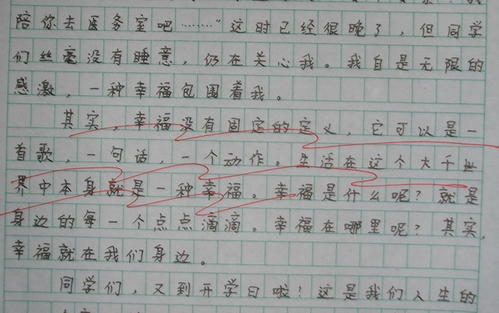 陪你去医务室吧………"这时已经很晚了，但同学
们丝毫没有睡意，仍在关心我。我自是无限的
感激，一种幸福包围着我。
其实，幸福没有固定的定义，它可以是一
首歌，一句话，一个动作。生活在这个大千世
界中本身就是一种幸福。幸福是什么呢？就是
身边的每一个点点滴滴。幸福在哪里呢？其实，
幸福就在我们身边。
同学们，又到开学日啦！这是我们人生的